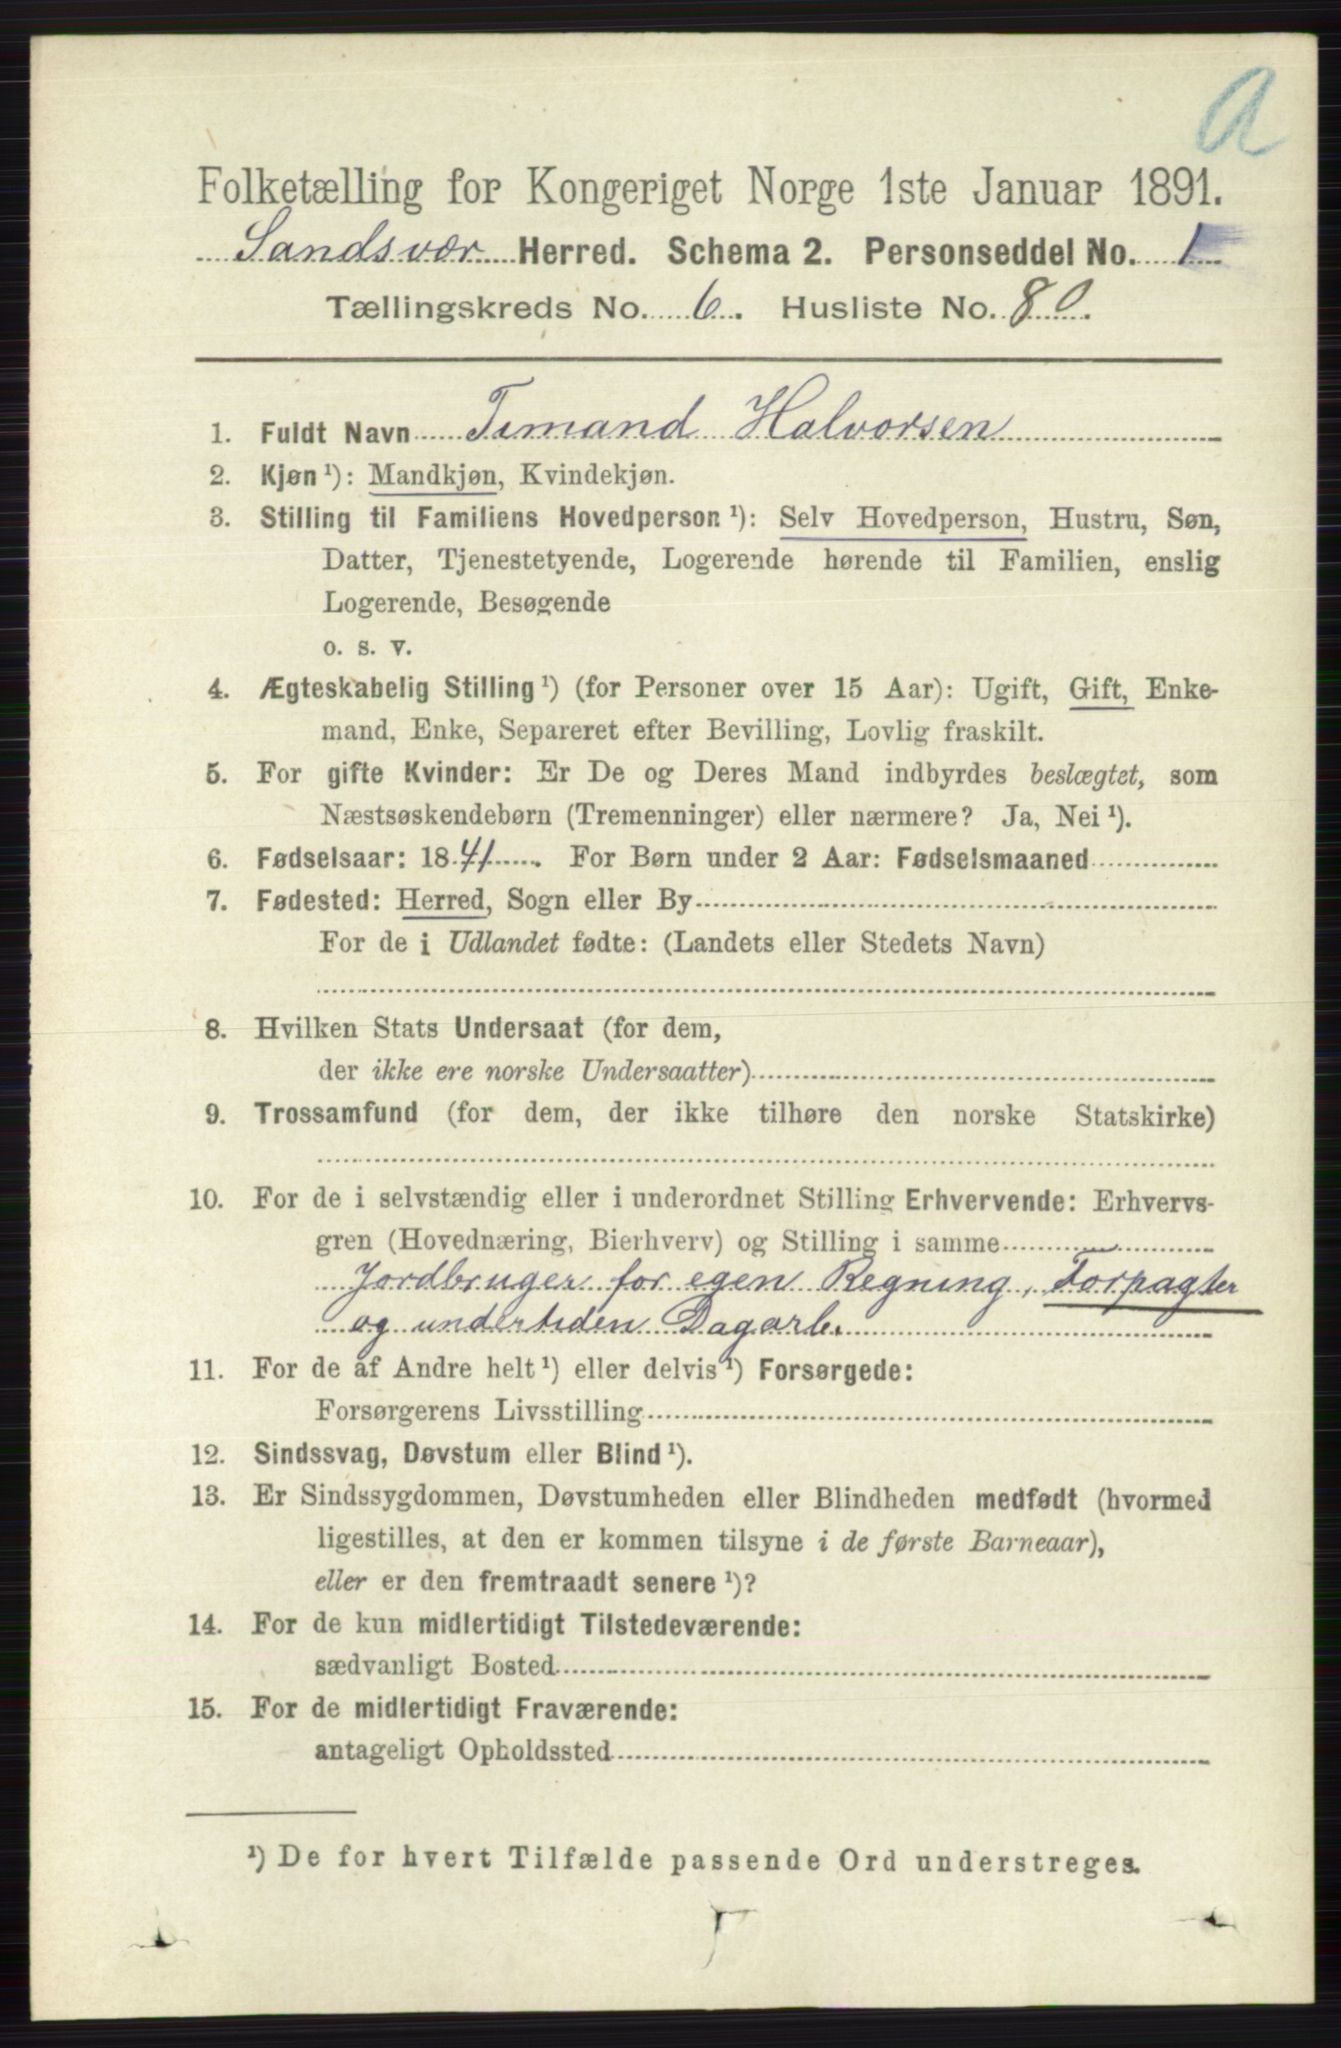 A
Folketælling for Kongeriget Norge 1ste Januar 1891.
Sandsvær Herred. Schema 2. Personseddel No. 1
Tællingskreds No. 6. Husliste No. 80.
1. Fuldt Navn Timand Halvorsen
2. Kjøn ¹): Mandkjøn, Kvindekjøn.
3. Stilling til Familiens Hovedperson ¹): Selv Hovedperson, Hustru, Søn,
Datter, Tjenestetyende, Logerende hørende til Familien, enslig
Logerende, Besøgende
o. s. v.
4. Ægteskabelig Stilling ¹) (for Personer over 15 Aar): Ugift, Gift, Enke-
mand, Enke, Separeret efter Bevilling, Lovlig fraskilt.
5. For gifte Kvinder: Er De og Deres Mand indbyrdes beslægtet, som
Næstsøskendebørn (Tremenninger) eller nærmere? Ja, Nei ¹).
6. Fødselsaar: 1841. For Børn under 2 Aar: Fødselsmaaned
7. Fødested: Herred, Sogn eller By
For de i Udlandet fødte: (Landets eller Stedets Navn)
8. Hvilken Stats Undersaat (for dem,
der ikke ere norske Undersaatter)
9. Trossamfund (for dem, der ikke tilhøre den norske Statskirke)
10. For de i selvstændig eller i underordnet Stilling Erhvervende: Erhvervs-
gren (Hovednæring, Bierhverv) og Stilling i samme
Jordbruger for egen Regning, Forpagter
og undertiden Dagarb.
11. For de af Andre helt ¹) eller delvis ¹) Forsørgede:
Forsørgerens Livsstilling
12. Sindssvag, Døvstum eller Blind ¹).
13. Er Sindssygdommen, Døvstumheden eller Blindheden medfødt (hvormed
ligestilles, at den er kommen tilsyne i de første Barneaar),
eller er den fremtraadt senere ¹)?
14. For de kun midlertidigt Tilstedeværende:
sædvanligt Bosted
15. For de midlertidigt Fraværende:
antageligt Opholdssted
¹) De for hvert Tilfælde passende Ord understreges.